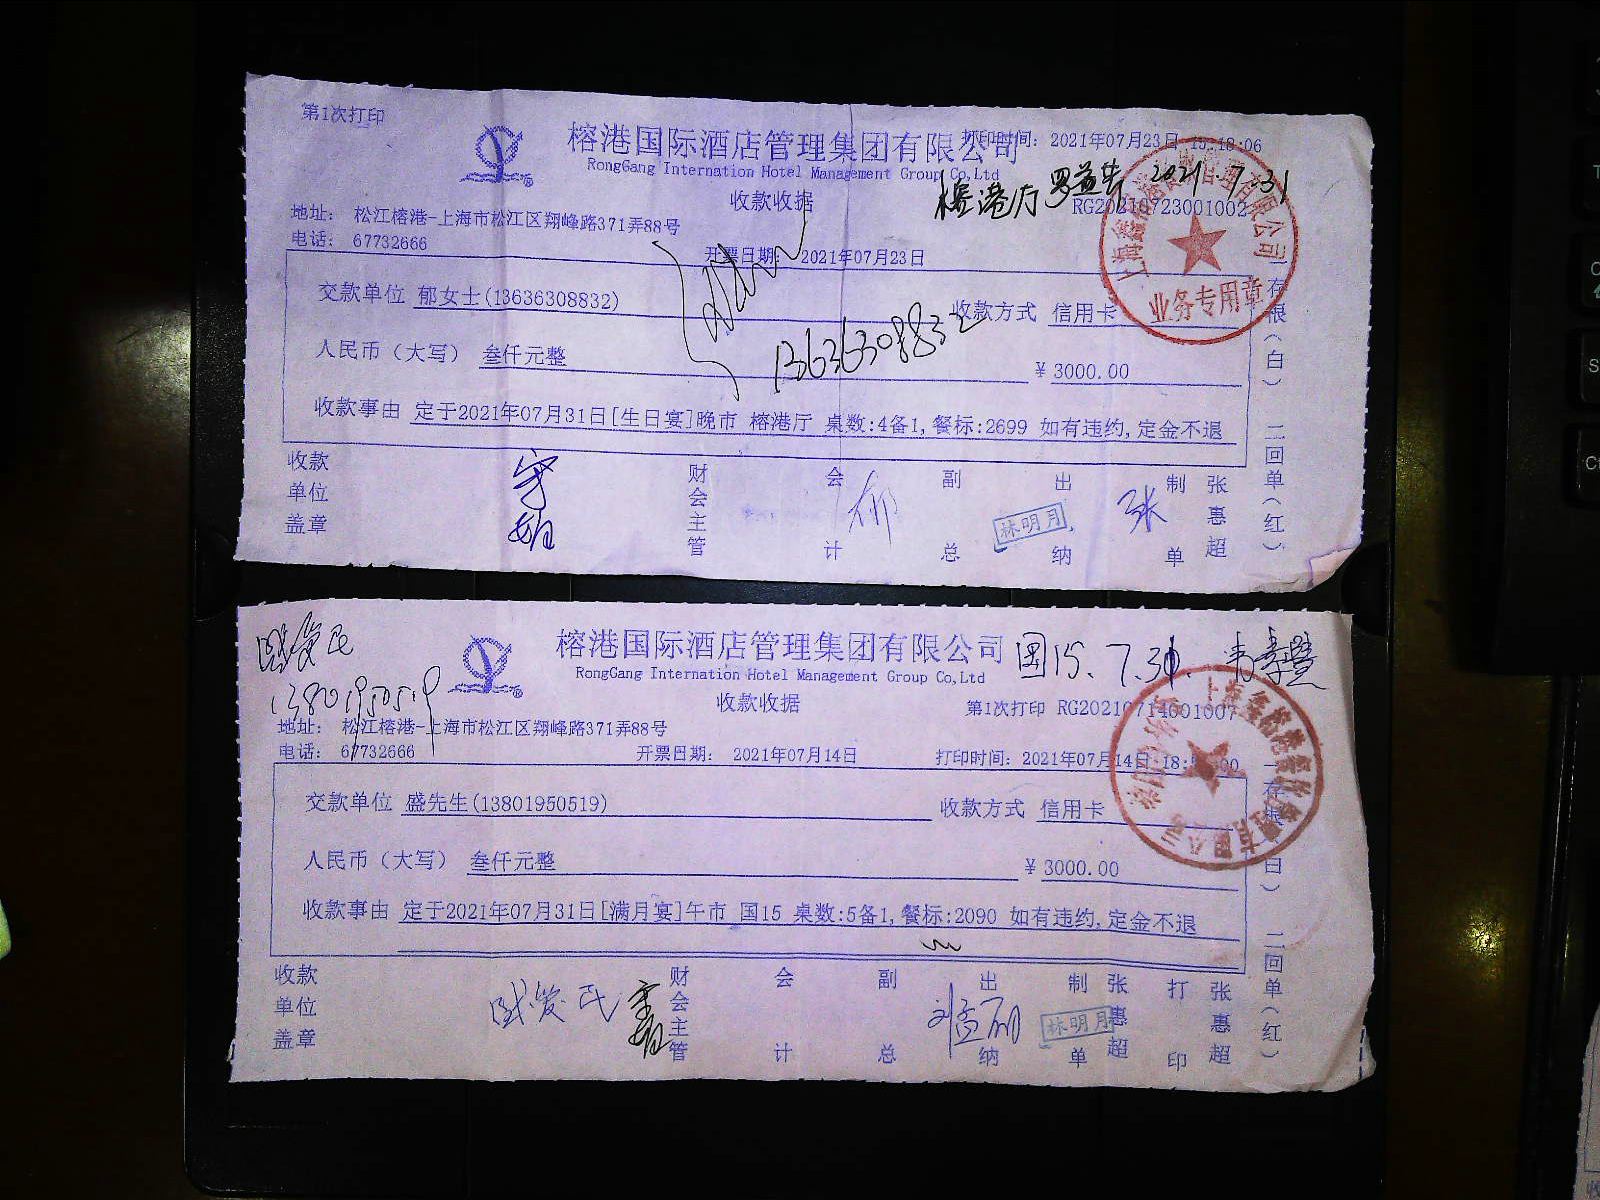 第1次打印
榕港国际酒店管理集团有限公司
打印时间: 2021年07月23日 15:18:06
RongGang Internation Hotel Management Group Co,Ltd
榕港厅 2021.7.31
收款收据
RG20210723001002
地址: 松江榕港-上海市松江区翔峰路371弄88号
电话: 67732666
开票日期: 2021年07月23日
交款单位 郁女士(13636308832)
收款方式 信用卡
13636308832
人民币（大写） 叁仟元整
¥ 3000.00
收款事由 定于2021年07月31日[生日宴]晚市 榕港厅 桌数:4备1,餐标:2699 如有违约,定金不退
收款单位盖章
财会主管
会计
郁
副总
出纳
林明月
张
制单
张惠超
一存根（白） 二回单（红）
业务专用章
榕港国际酒店管理集团有限公司
国15. 7.31
RongGang Internation Hotel Management Group Co,Ltd
13801950519
收款收据
第1次打印 RG20210714001007
地址: 松江榕港-上海市松江区翔峰路371弄88号
电话: 67732666
开票日期: 2021年07月14日
打印时间: 2021年07月14日 18:
交款单位 盛先生(13801950519)
收款方式 信用卡
人民币（大写） 叁仟元整
¥ 3000.00
收款事由 定于2021年07月31日[满月宴]午市 国15 桌数:5备1,餐标:2090 如有违约,定金不退
收款单位盖章
财会主管
会计
副总
出纳
林明月
制单
张惠超
打印
张惠超
一存根（白） 二回单（红）